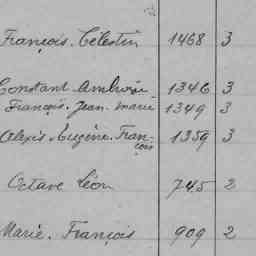 François. Célestin 1468 3
Constant Ambroise 1346 3
François. Jean. Marie 1349 3
Alexis Eugène. Fran- 1359 3
çois
Octave Léon 745 2
Marie. François 909 2